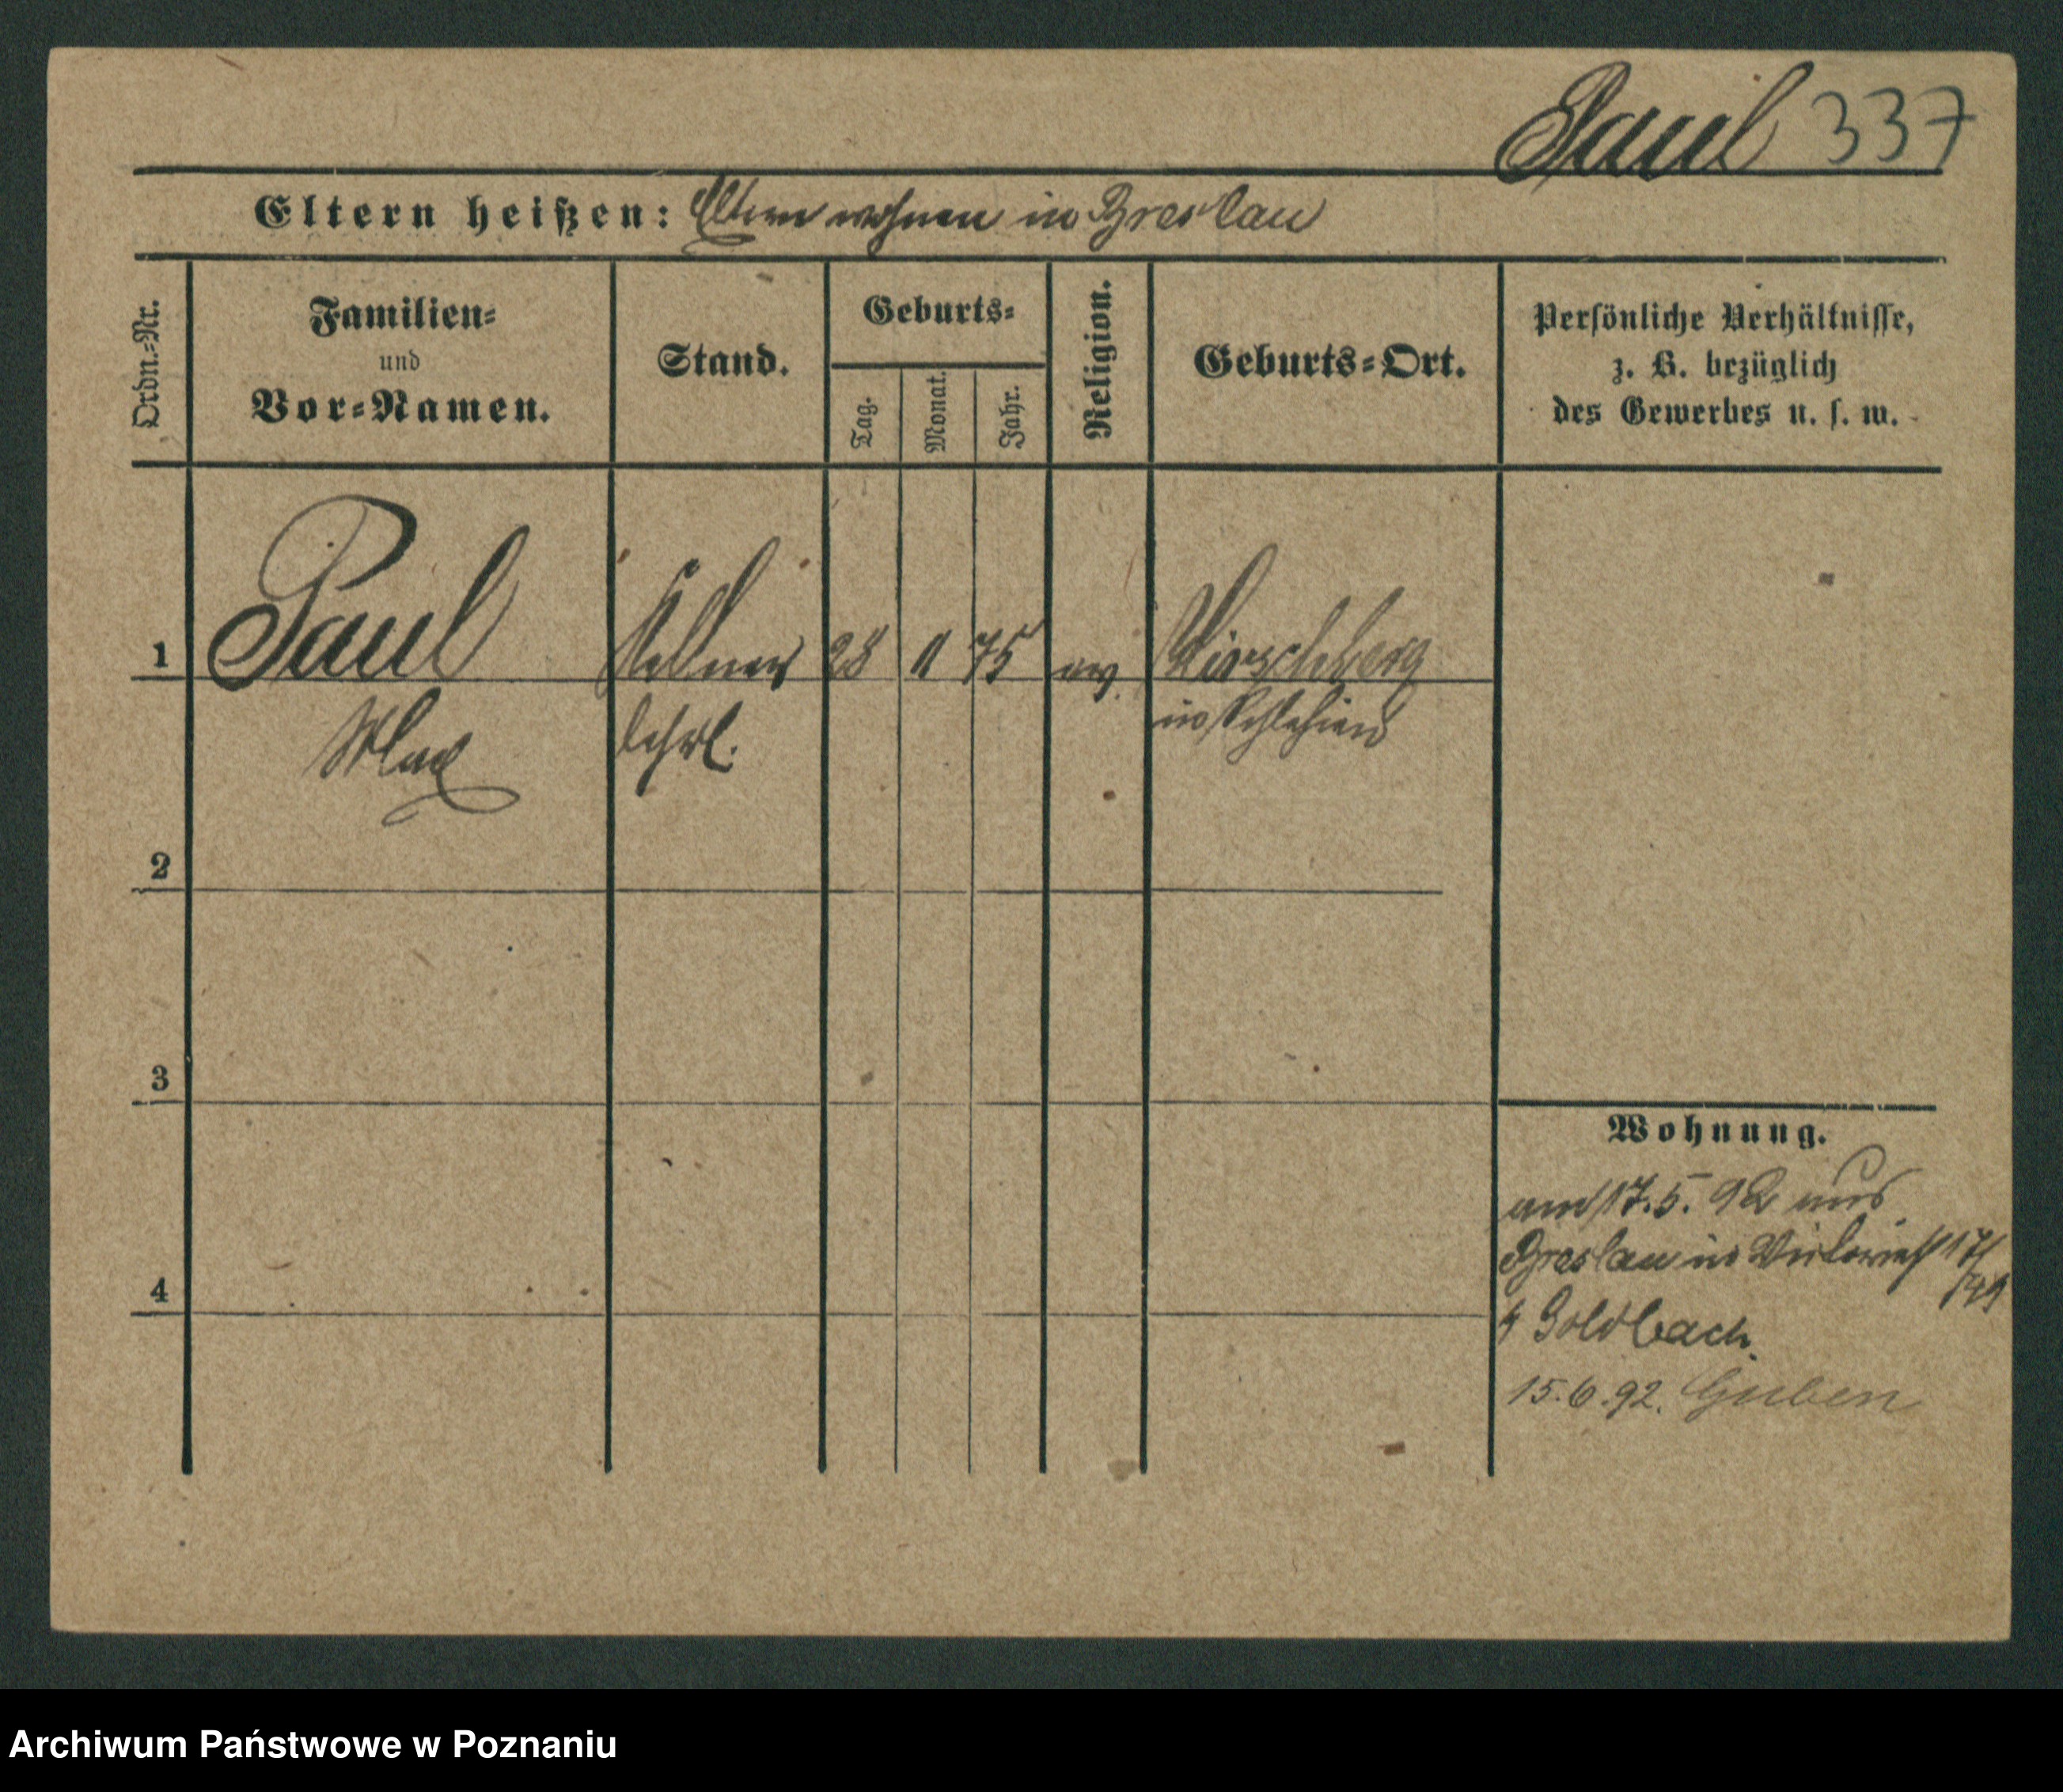 Paul 337
Eltern heißen: Eltern wohnen in Breslau
Ordn.-Nr.
Familien-
und
Vor-Namen.
Stand.
Geburts-
Tag.
Monat.
Jahr.
Religion.
Geburts-Ort.
Persönliche Verhältnisse,
z. B. bezüglich
des Gewerbes u. s. w.
1 Paul Kellner 28 11 75 ev. Hirschberg
Max lehrl. in Schlesien
2
3
4
Wohnung.
am 17.5.92 aus
Breslau in 17/
Goldbach.
15.6.92. Guben
Archiwum Państwowe w Poznaniu